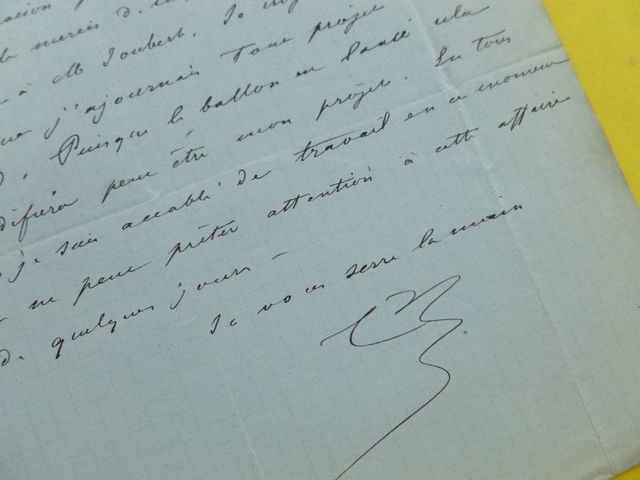 merci de
à M Joubert. Je
j'ajournais Tout projet
Puisque le ballon est lancé cela
difiera peut être mon projet. En tous
je suis accablé de travail en ce moment
ne peux prêter attention à cette affaire
de quelques jours -
Je vous serre la main